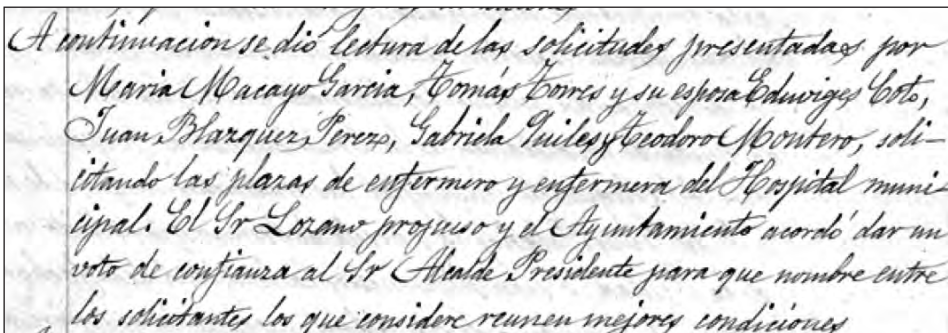 A continuacion se dió lectura de las solicitudes presentadas por
Maria Macayo Garcia, Tomás Torres y su esposa Eduviges Coto,
Juan Blazquez Perez, Gabriela Quiles y Teodoro Montero, soli-
citando las plazas de enfermero y enfermera del Hospital muni
cipal. El Sr Lozano propuso y el Ayuntamiento acordó dar un
voto de confianza al Sr Alcalde Presidente para que nombre entre
los solicitantes los que considere reunen mejores condiciones